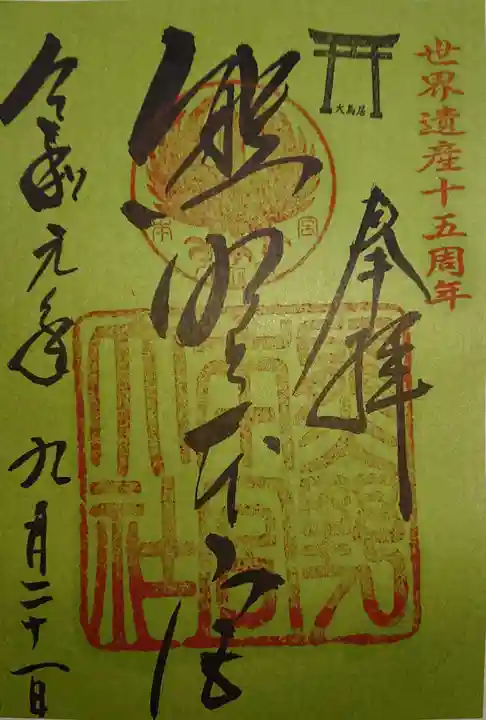 世界遺産十五周年
大鳥居
奉拝
熊野本宮
熊野本宮大社
令和元年 九月二十一日